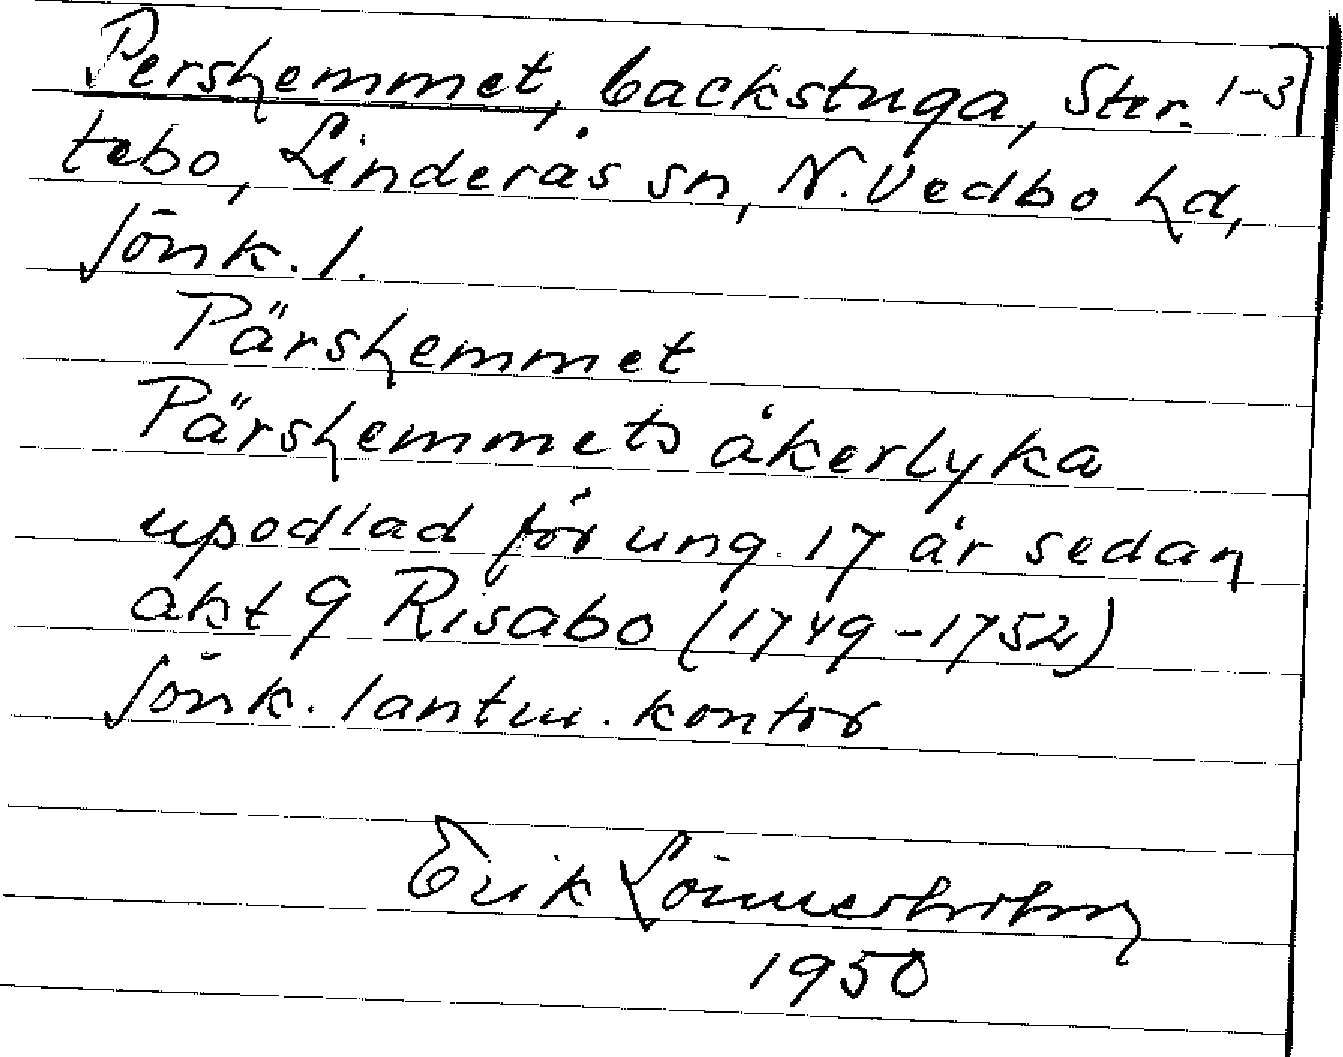 Pershemmet, backstuga, Ster- 1-3
tebo, Linderås sn, N. Vedbo hd,
Jönk. l.
Pärshemmet
Pärshemmets åkerlyka
upodlad för ung. 17 år sedan
akt 9 Risabo (1749-1752)
Jönk. lantm. kontor
Erik Lönnerholm
1950